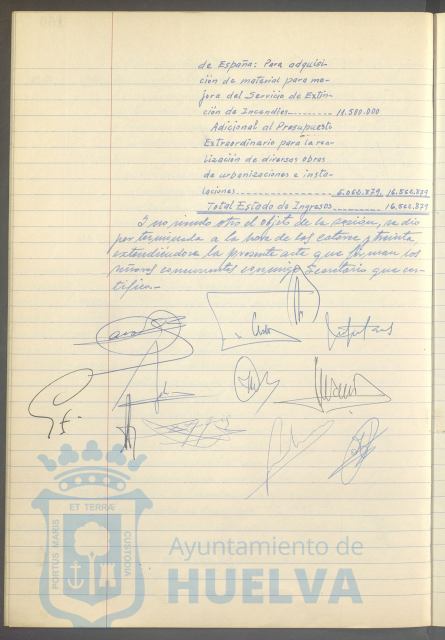 de España: Para adquisi-
ción de material para me-
jora del Servicio de Extin-
ción de Incendios---------- 11.500.000
Adicional al Presupuesto
Extraordinario para la rea-
lización de diversas obras
de urbanizaciones e insta-
laciones-------------------- 5.062.879, 16.562.879
Total Estado de Ingresos--------- 16.562.879
Y no siendo otro el objeto de la sesión, se dio
por terminada a la hora de las catorce, treinta
extendiéndose la presente acta que firman los
señores concurrentes conmigo Secretario que cer-
tifico.-
ET TERRÆ
PORTUS MARIS
CUSTODIA
Ayuntamiento de
HUELVA